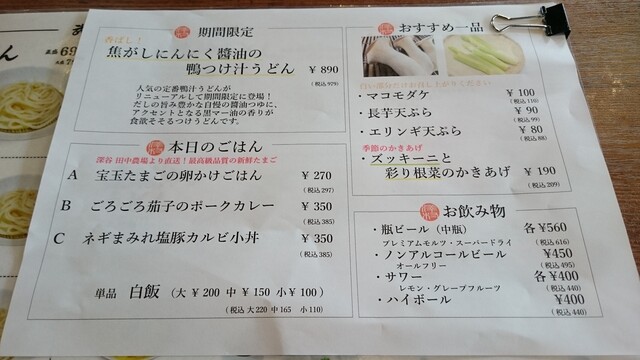 期間限定
香ばし！
焦がしにんにく醬油の
鴨つけ汁うどん ￥890
(税込979)
人気の定番鴨汁うどんが
リニューアルして期間限定に登場！
だしの旨み豊かな自慢の醤油つゆに、
アクセントとなる黒マー油の香りが
食欲そそるつけうどんです。
本日のごはん
深谷 田中農場より直送！最高級品質の新鮮たまご
A 宝玉たまごの卵かけごはん ￥270
(税込297)
B ごろごろ茄子のポークカレー ￥350
(税込385)
C ネギまみれ塩豚カルビ小丼 ￥350
(税込385)
単品 白飯 (大￥200 中￥150 小￥100)
(税込 大220 中165 小110)
おすすめ一品
・マコモダケ ￥100
(税込110)
・長芋天ぷら ￥90
(税込99)
・エリンギ天ぷら ￥80
(税込88)
季節のかきあげ
・ズッキーニと
彩り根菜のかきあげ ￥190
(税込209)
お飲み物
・瓶ビール（中瓶） 各¥560
プレミアムモルツ・スーパードライ (税込616)
・ノンアルコールビール ¥450
オールフリー (税込495)
・サワー 各¥400
レモン・グレープフルーツ (税込440)
・ハイボール ¥400
(税込440)